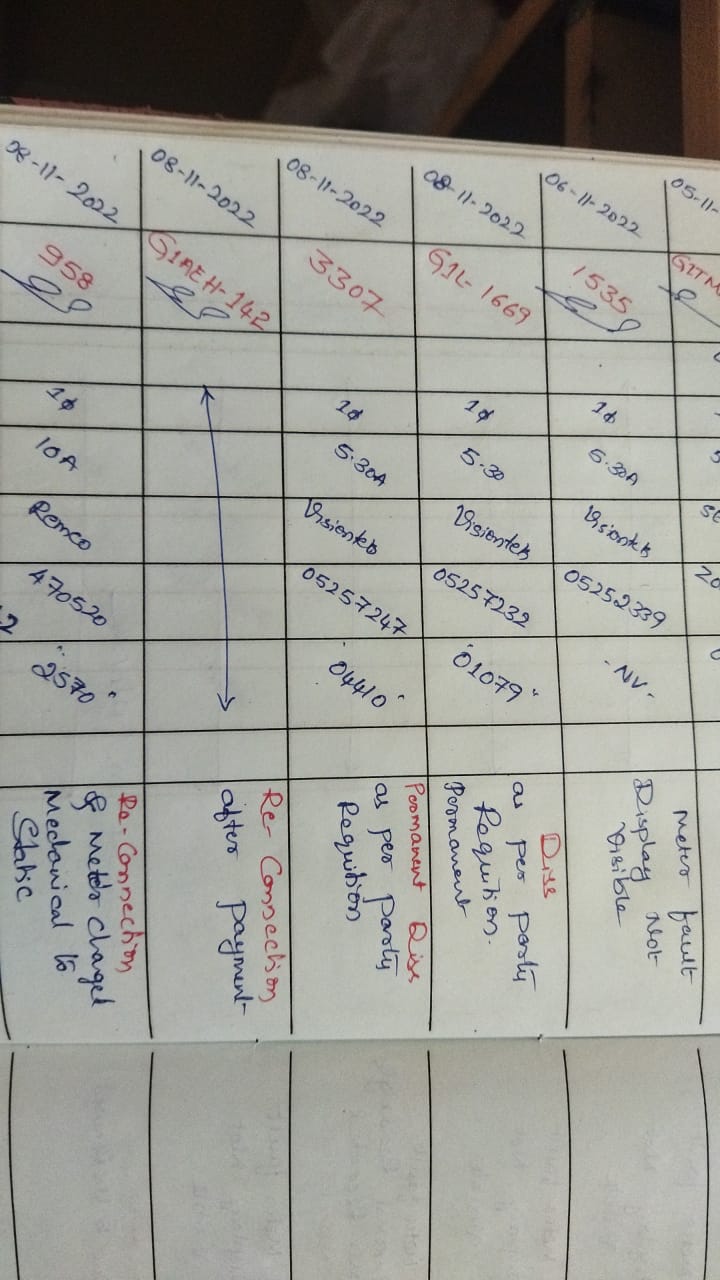 05-11-
06-11-2022
1535
1ϕ
5.30A
Visiontek
05252339
-NV-
Meter fault
Display Not
Visible
08-11-2022
G1L-1669
1ϕ
5.30
Visiontek
05257232
"01079"
Diss
as per party
Requition.
Permanent
08-11-2022
3307
1ϕ
5.30A
Visiontek
05257247
"04410"
Permanent Diss
as per party
Requition
08-11-2022
G1AEH-142
Re-Connection
after payment
08-11-2022
958
1ϕ
10A
Remco
470520
"2570"
Re-Connection
& meter changed
Mechanical to
Static